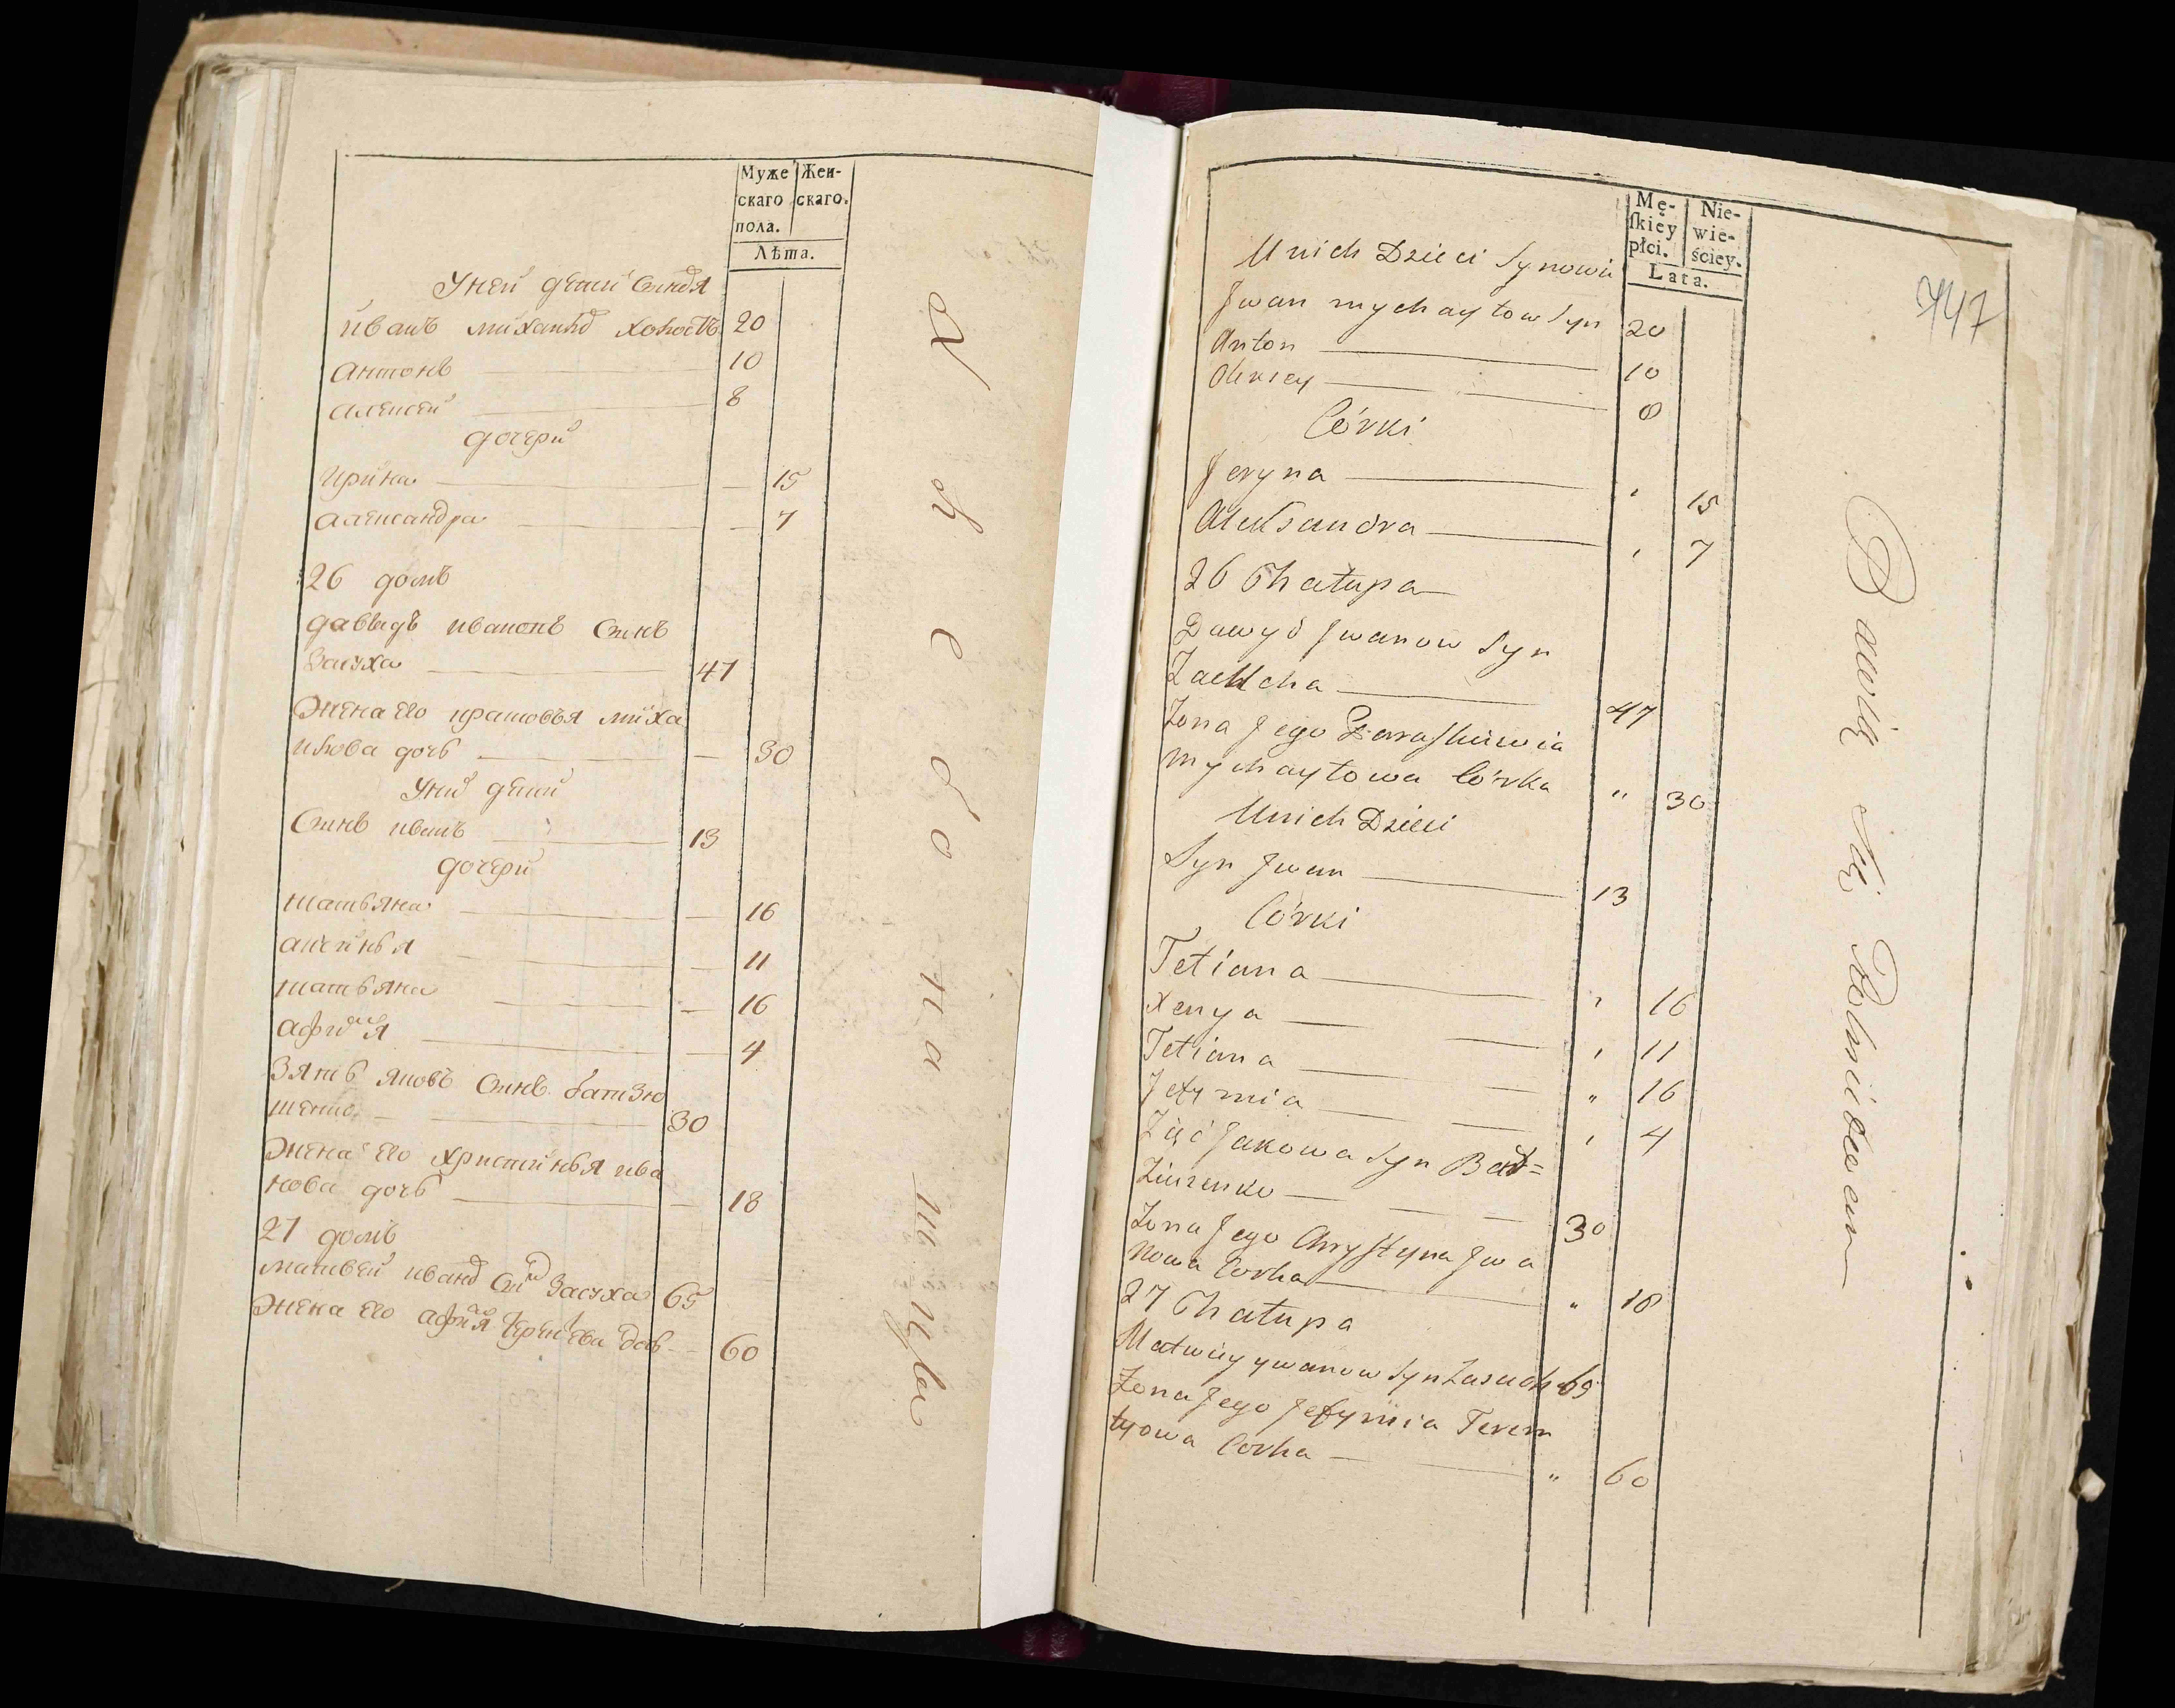 Муже
скаго
пола.
Жен-
скаго.
Лѣта.
Уней дѣтей Синовя
иванъ михаилв холостъ 20
антонъ 10
алексей 8
дочери
ирина — 15
александра — 7
26 домъ
давыдъ ивановъ Синъ
Засуха 47
Жена его прасковья миха
илова дочь — 30
Уних дѣтей
Синъ иванъ 13
дочери
татьяна — 16
аксинья — 11
татьяна — 16
афимия — 4
Зять яковъ Синъ
30
Жена его христинья ива
нова дочь — 18
27 домъ
матвей иванов Син Засуха 65
Жена его дочь — 60
747
Mę-
skiey
płci.
Nie-
wie-
ściey.
Lata.
Unich Dzieci Synowie
Jwan mychayłow Syn 20
Anton 10
Olexey 8
Córki
Jeryna 15
Alexsandra 7
26 Chałupa
Dawyd Jwanow Syn
47
Zona Jego Paraskiewia
mychayłowa Córka " 30
Unich Dzieci
Syn Jwan 13
Córki
Tetiana 16
Xenya 11
Tetiana " 16
Jefymia 4
Zięć Jakowa Syn
30
Zona Jego Chrystyna Jwa
nowa Corka " 18
27 Chałupa
Matwiey ywanow Syn Zasucha 65
Zona Jego Jefymia
Corka " 60
Bawią się Rolnictwem